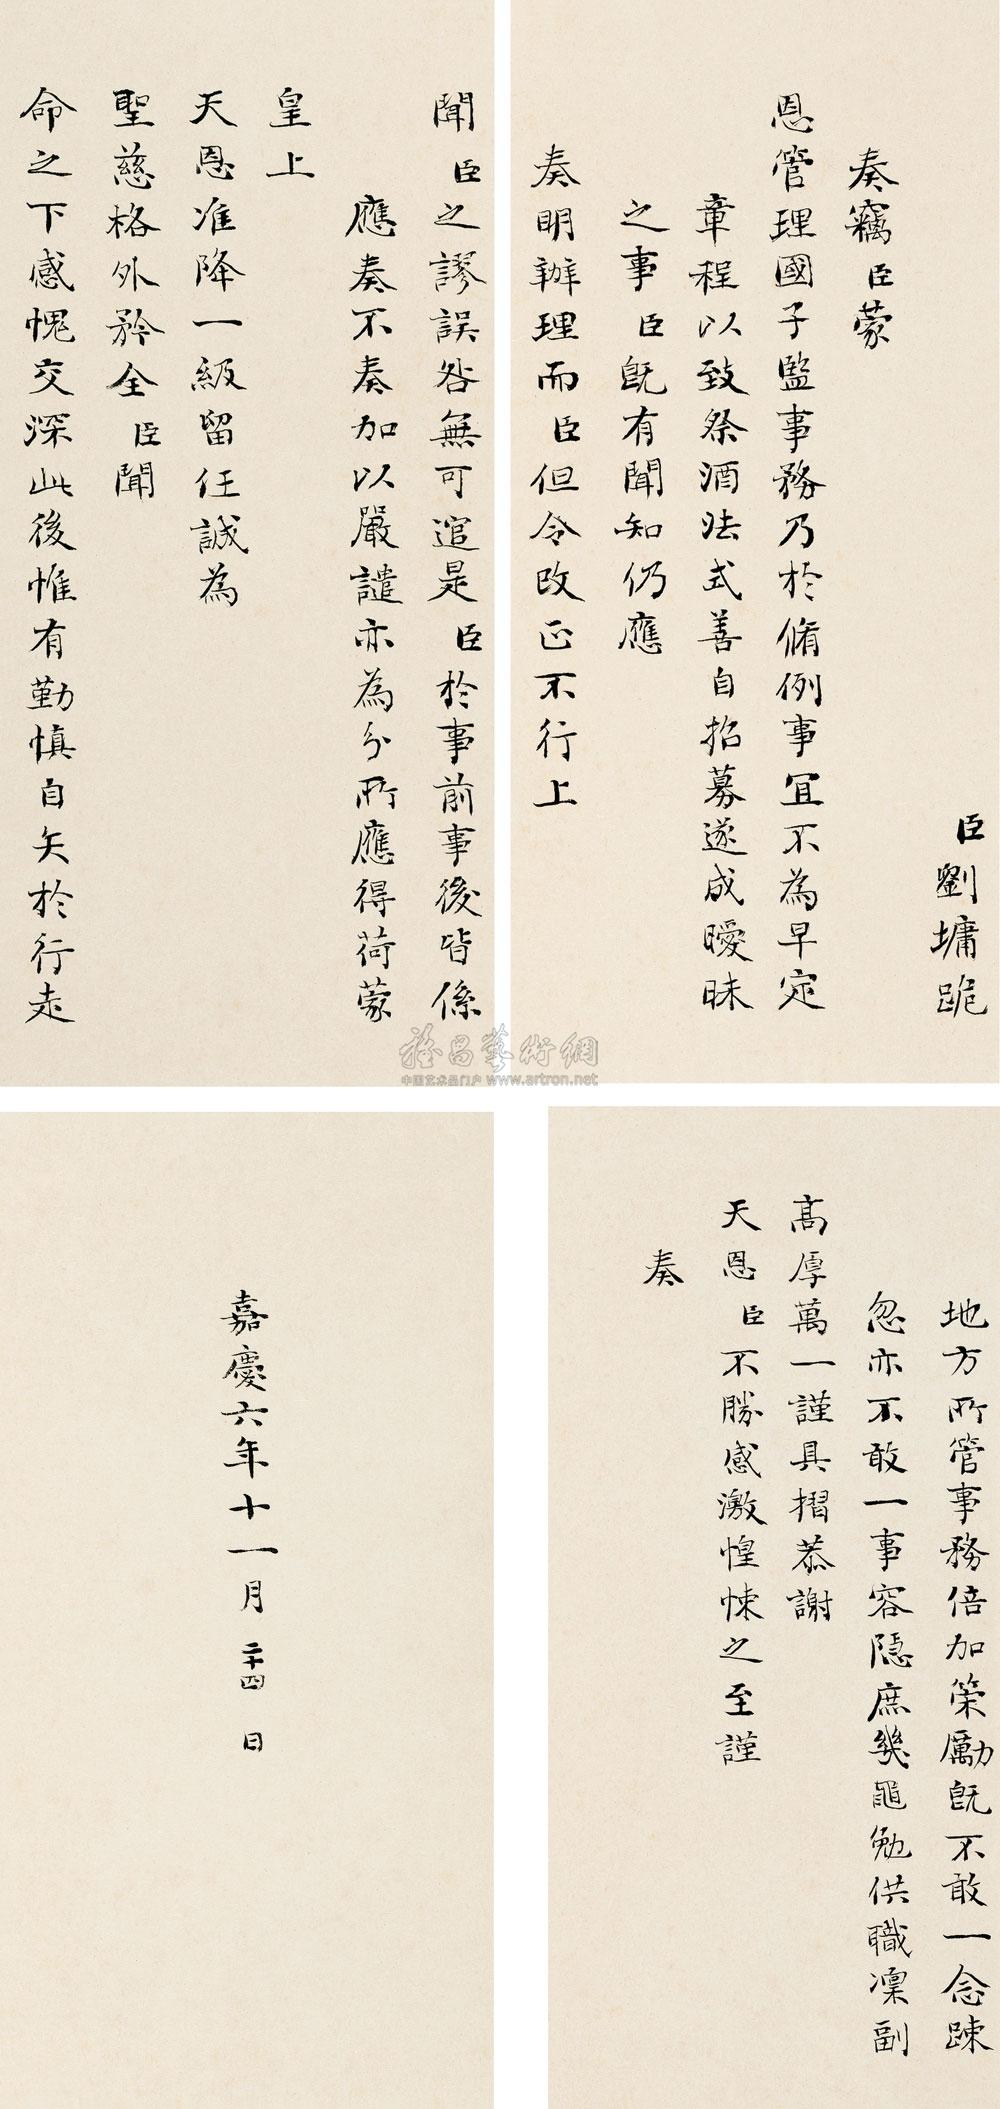 臣劉墉跪
奏竊臣蒙
恩管理國子監事務乃於脩例事宜不為早定
章程以致祭酒法式善自招募遂成曖昧
之事臣既有聞知仍應
奏明辦理而臣但令改正不行上
聞臣之謬誤咎無可逭是臣於事前事後皆係
應奏不奏加以嚴譴亦為分所應得荷蒙
皇上
天恩准降一級留任誠為
聖慈格外矜全臣聞
命之下感愧交深此後惟有勤慎自矢於行走
地方所管事務倍加策勵既不敢一念疎
忽亦不敢一事容隱庶幾黽勉供職凜副
高厚萬一謹具摺恭謝
天恩臣不勝感激惶悚之至謹
奏
嘉慶六年十一月二十四日
雅昌藝術網
中国艺术品门户 www.artron.net